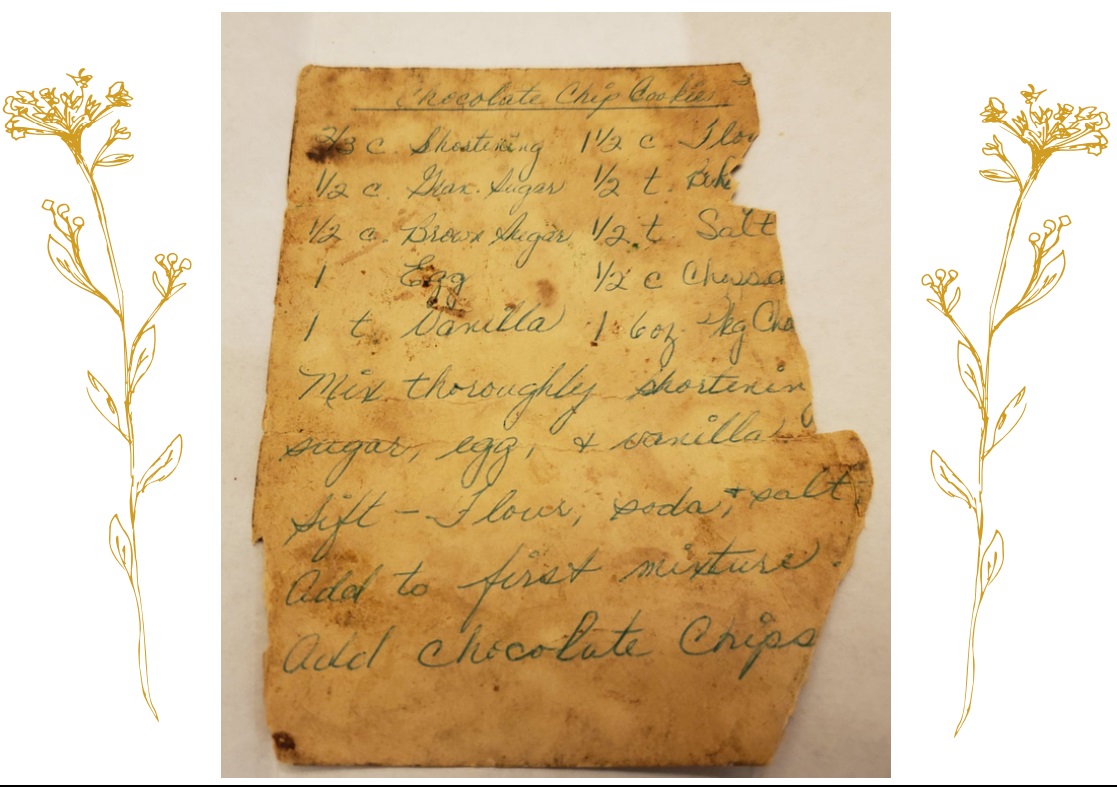 Chocolate Chip Cookies
2/3 c Shortening 1 1/2 c Flou
1/2 c. Gran. Sugar 1/2 t.
1/2 c. Brown Sugar 1/2 t. Salt
1 Egg 1/2 c
1 t. Vanilla 1 6oz. pkg Cho
Mix thoroughly shortenin
sugar, egg, & vanilla
Sift - Flour, soda, + salt
Add to first mixture.
Add chocolate Chips